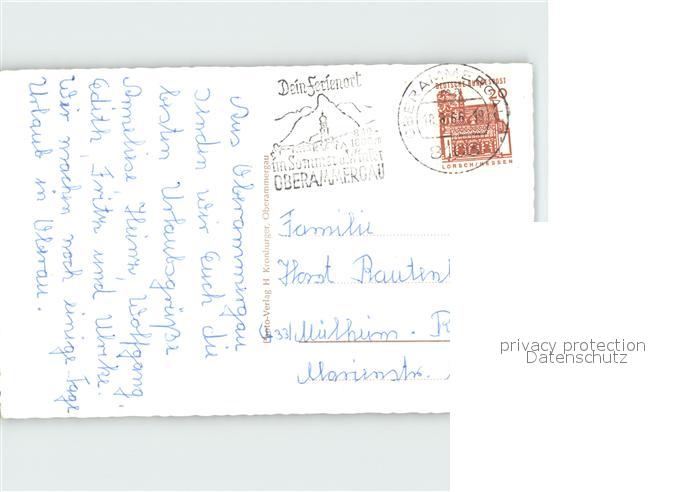 Aus Oberammergau
senden wir Euch die
besten Urlaubsgrüße
Anneliese, Heiner, Wolfgang,
Edith, Fritz und Ulrike.
Wir machen noch einige Tage
Urlaub in Oberau.
Foto-Verlag H Kronburger, Oberammergau
Dein Ferienort
im Sommer und Winter
OBERAMMERGAU
OBERAMMERGAU
DEUTSCHE BUNDESPOST
20
LORSCH/HESSEN
Familie
Horst Rautenb
433 Mülheim - R
Marienstr.
privacy protection
Datenschutz